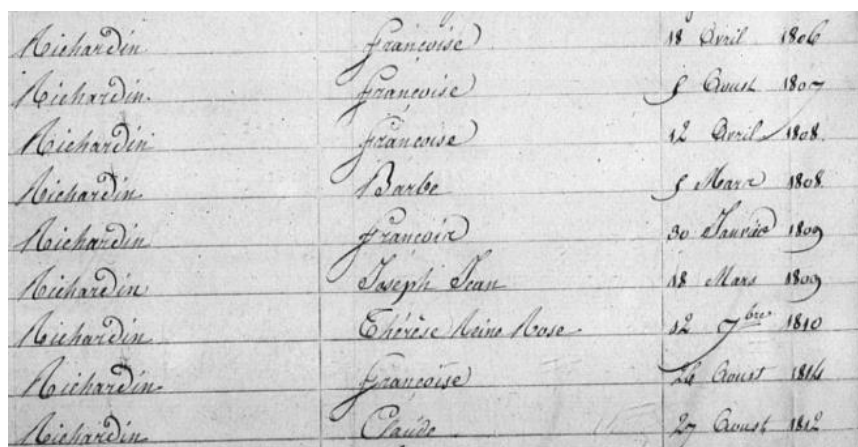 Richardin Françoise 18 Avril 1806
Richardin Françoise 5 Aoust 1807
Richardin Françoise 12 Avril 1808
Richardin Barbe 5 Mars 1808
Richardin François 30 Janvier 1809
Richardin Joseph Jean 18 Mars 1809
Richardin Thérèse Reine Rose 12 7bre 1810
Richardin Françoise Aoust
Richardin Claude 27 Aoust 1812